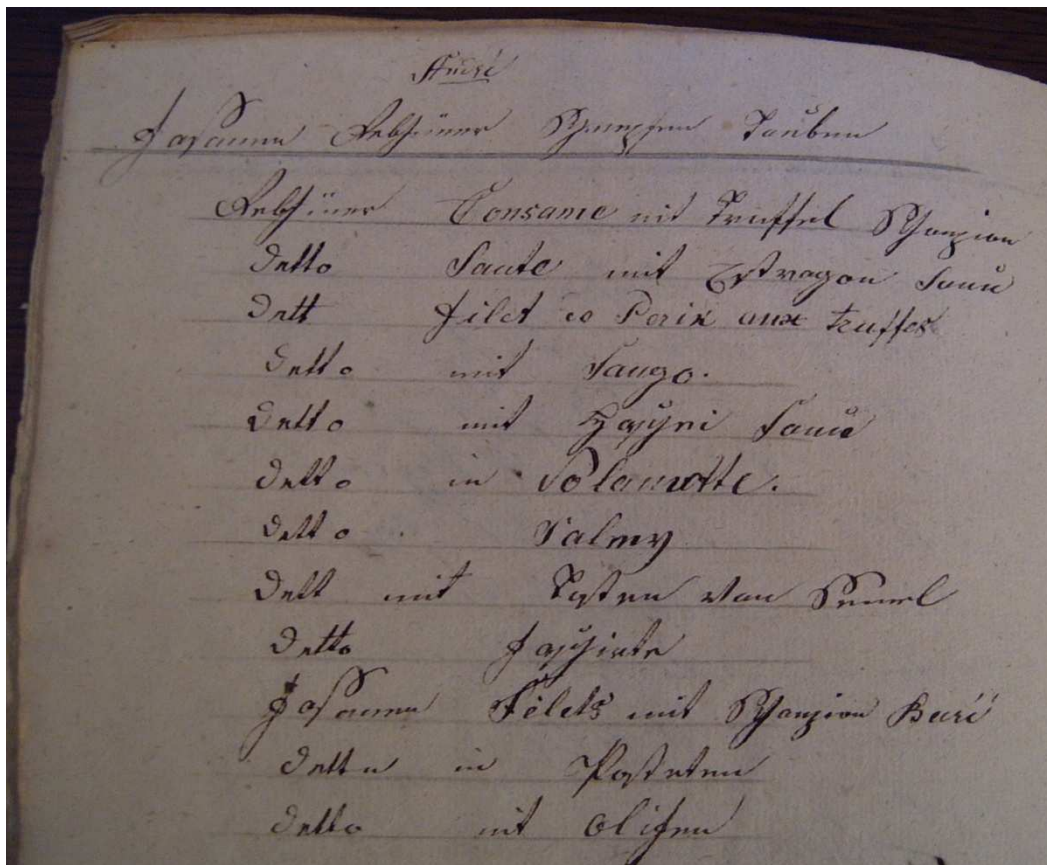 Fasanen Rebhüner Schnepfen Tauben
Rebhüner Consame mit Truffel Schanpion
Detto Saute mit Estragon
Dett Filet Perix aux truffes
Detto mit
Detto mit Haschi
Detto in
Detto Salmy
Dett mit von Semel
Detto Faschirte
Fasanen Filets mit Schanpion
Detto in Pasteten
Detto mit Olifen